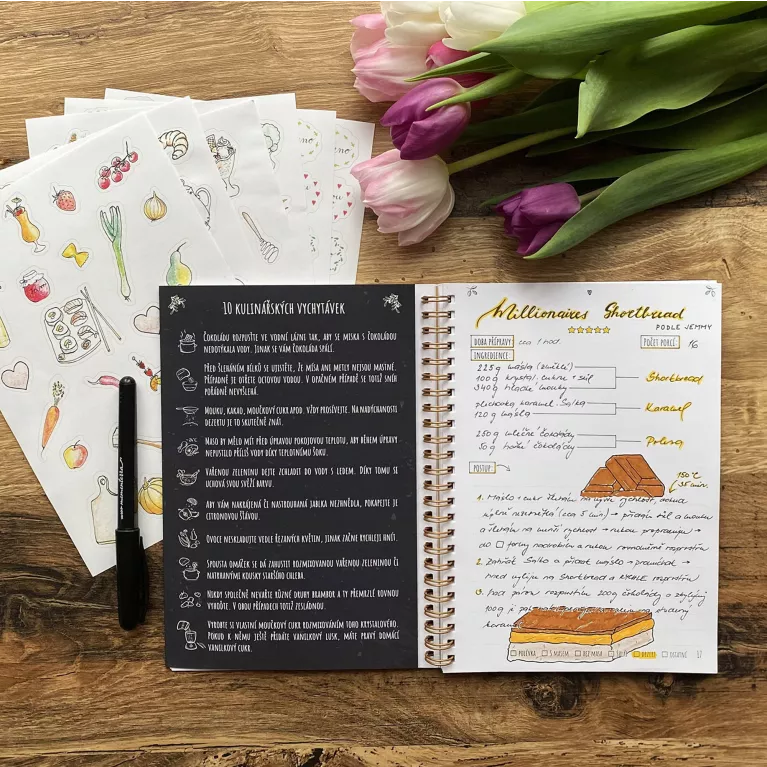 10 KULINÁŘSKÝCH VYCHYTÁVEK
ČOKOLÁDU ROZPUSŤTE VE VODNÍ LÁZNI TAK, ABY SE MISKA S ČOKOLÁDOU
NEDOTÝKALA VODY. JINAK SE VÁM ČOKOLÁDA SPÁLÍ.
PŘED ŠLEHÁNÍM BÍLKŮ SE UJISTĚTE, ŽE MÍSA ANI METLY NEJSOU MASTNÉ.
PŘÍPADNĚ JE OTŘETE OCTOVOU VODOU. V OPAČNÉM PŘÍPADĚ SE TOTIŽ SNÍH
POŘÁDNĚ NEVYŠLEHÁ.
MOUKU, KAKAO, MOUČKOVÝ CUKR APOD. VŽDY PROSÍVEJTE. NA NADÝCHANOSTI
DEZERTU JE TO SKUTEČNĚ ZNÁT.
MASO BY MĚLO MÍT PŘED ÚPRAVOU POKOJOVOU TEPLOTU, ABY BĚHEM ÚPRAVY
NEPUSTILO PŘÍLIŠ VODY DÍKY TEPLOTNÍMU ŠOKU.
VAŘENOU ZELENINU DEJTE ZCHLADIT DO VODY S LEDEM. DÍKY TOMU SI
UCHOVÁ SVOU SVĚŽÍ BARVU.
ABY VÁM NAKRÁJENÁ ČI NASTROUHANÁ JABLKA NEZHNĚDLA, POKAPEJTE JE
CITRONOVOU ŠŤÁVOU.
OVOCE NESKLADUJTE VEDLE ŘEZANÝCH KVĚTIN, JINAK ZAČNE RYCHLEJI HNÍT.
SPOUSTA OMÁČEK SE DÁ ZAHUSTIT ROZMIXOVANOU VAŘENOU ZELENINOU ČI
NATRHANÝMI KOUSKY STARŠÍHO CHLEBA.
NIKDY SPOLEČNĚ NEVAŘTE RŮZNÉ DRUHY BRAMBOR A TY PŘEMRZLÉ ROVNOU
VYHOĎTE. V OBOU PŘÍPADECH TOTIŽ ZESLÁDNOU.
VYROBTE SI VLASTNÍ MOUČKOVÝ CUKR ROZMIXOVÁNÍM TOHO KRYSTALOVÉHO.
POKUD K NĚMU JEŠTĚ PŘIDÁTE VANILKOVÝ LUSK, MÁTE PRAVÝ DOMÁCÍ
VANILKOVÝ CUKR.
Millionaires Shortbread
PODLE JEMMY
DOBA PŘÍPRAVY: cca 1 hod.
POČET PORCÍ: 16
INGREDIENCE:
225g másla (změklé)
100g krystal. cukru + sůl
340g hladké mouky
Shortbread
plechovka karamel. Salka
120g másla
Karamel
250g mléčné čokolády
50g hořké čokolády
Poleva
POSTUP:
150°C
35 min.
1. Máslo + cukr šlehám na vyšší rychlost, dokud
(cca 5 min) → přidám sůl a mouku
a šlehám na menší rychlost → rukou propracuju →
do formy
2. Zahřát Salko a přidat máslo →
3. 200g čokolády a zbylých
100g
POLÉVKA S MASEM BEZ MASA DEZERT OSTATNÍ 17